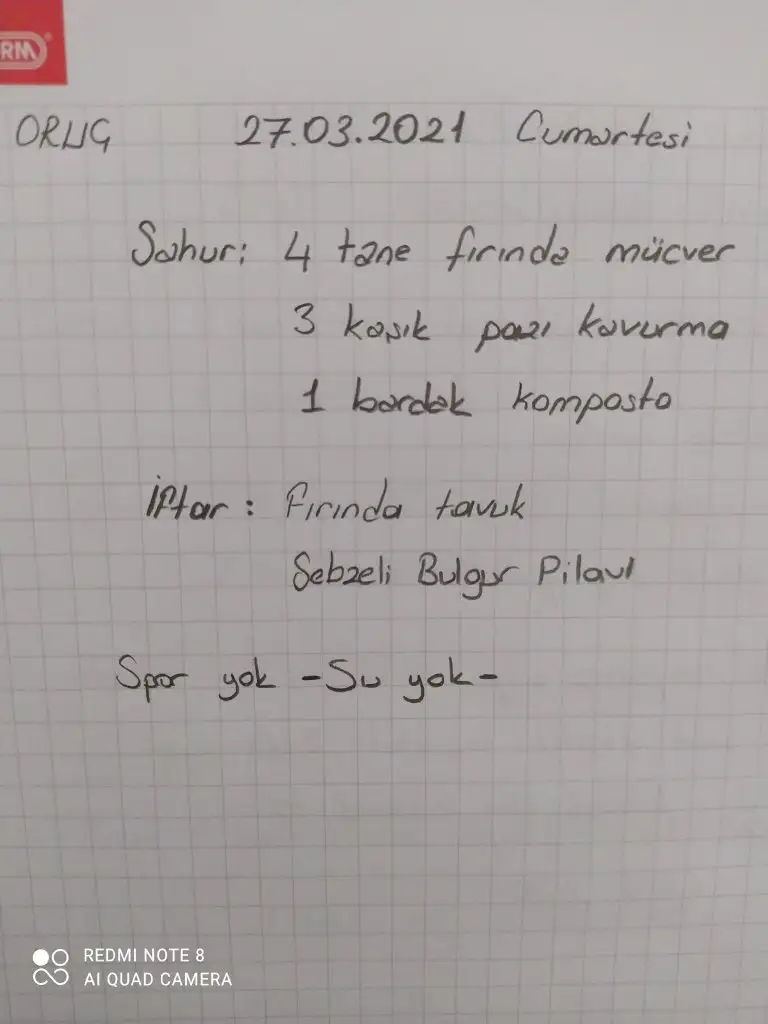 RM
ORUÇ 27.03.2021 Cumartesi
Sahur: 4 tane fırında mücver
3 kaşık pazı kavurma
1 bardak komposto
İftar: Fırında tavuk
Sebzeli Bulgur Pilavı
Spor yok -Su yok-
REDMI NOTE 8
AI QUAD CAMERA